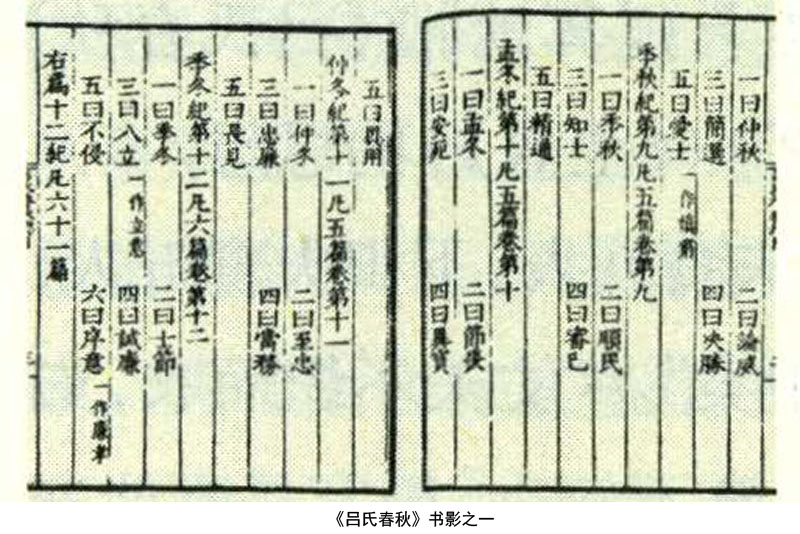 一曰仲秋 二曰論威
三曰簡選 四曰決勝
五曰愛士 一作慎窮
季秋紀第九凡五篇卷第九
一曰季秋 二曰順民
三曰知士 四曰審己
五曰精通
孟冬紀第十凡五篇卷第十
一曰孟冬 二曰節喪
三曰安死 四曰異寶
五曰異用
仲冬紀第十一凡五篇卷第十一
一曰仲冬 二曰至忠
三曰忠廉 四曰當務
五曰長見
季冬紀第十二凡六篇卷第十二
一曰季冬 二曰士節
三曰八立 一作立意 四曰誠廉
五曰不侵 六曰序意 一作廉孝
右爲十二紀凡六十一篇
《吕氏春秋》书影之一